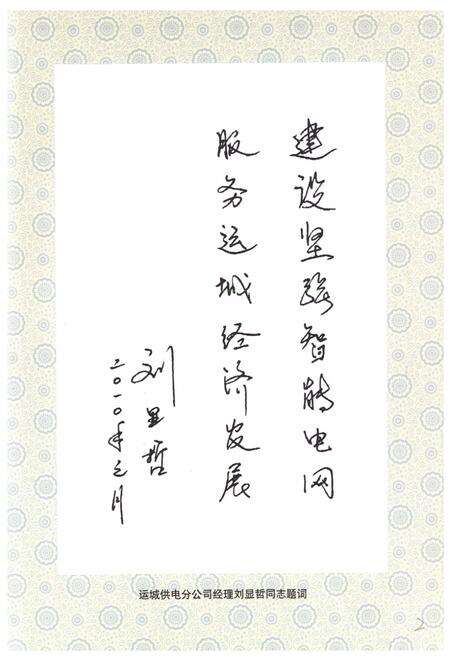 建设坚强智能电网
服务运城经济发展
刘显哲
二〇一〇年元月
运城供电分公司经理刘显哲同志题词
2